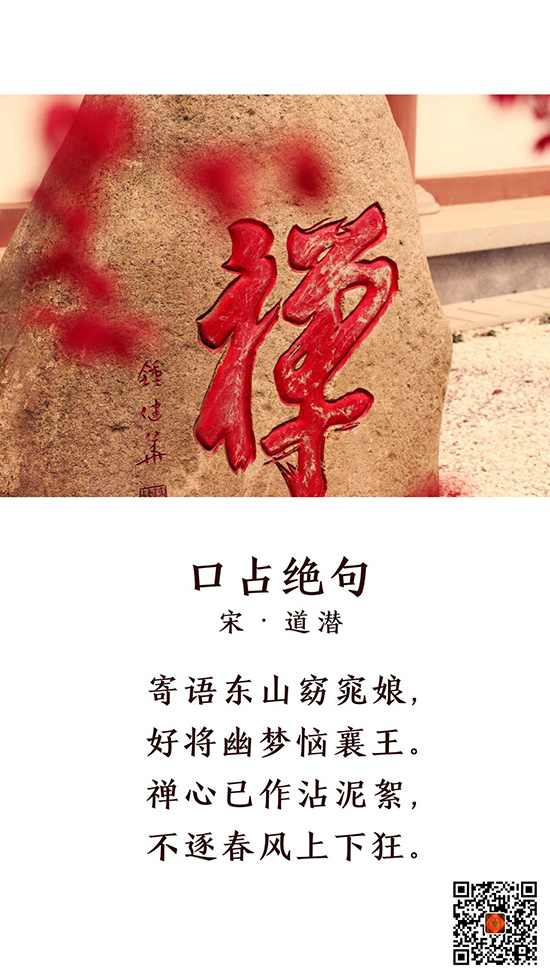 禅
鍾
健
华
口占绝句
宋·道潜
寄语东山窈窕娘,
好将幽梦恼襄王。
禅心已作沾泥絮,
不逐春风上下狂。